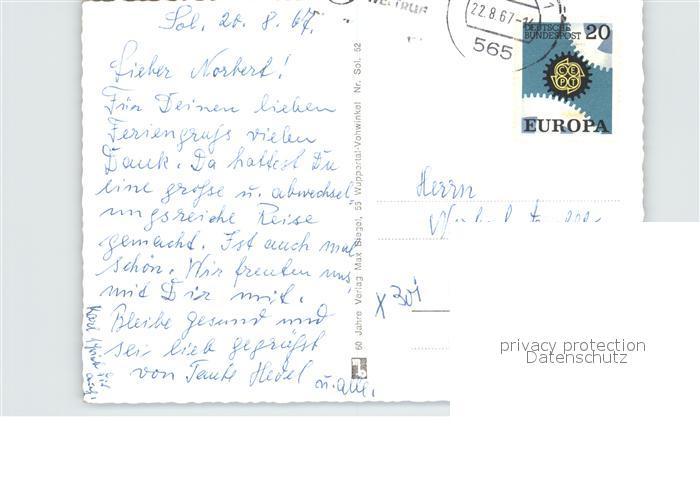 Sol. 20. 8. 67.
Lieber Norbert!
Für Deinen lieben
Feriengruß vielen
Dank. Da hattest Du
eine große u. abwechsel-
ungsreiche Reise
gemacht. Ist auch mal
schön. Wir freuten uns
mit Dir mit.
Bleibe gesund und
sei lieb gegrüßt
von Tante Hedel
u. alle.
Karl
auch.
60 Jahre Verlag Max Biegel, 56 Wuppertal-Vohwinkel Nr. Sol. 52
22.8.67
565
DEUTSCHE
BUNDESPOST 20
CEPT
EUROPA
Herrn
x 301
privacy protection
Datenschutz